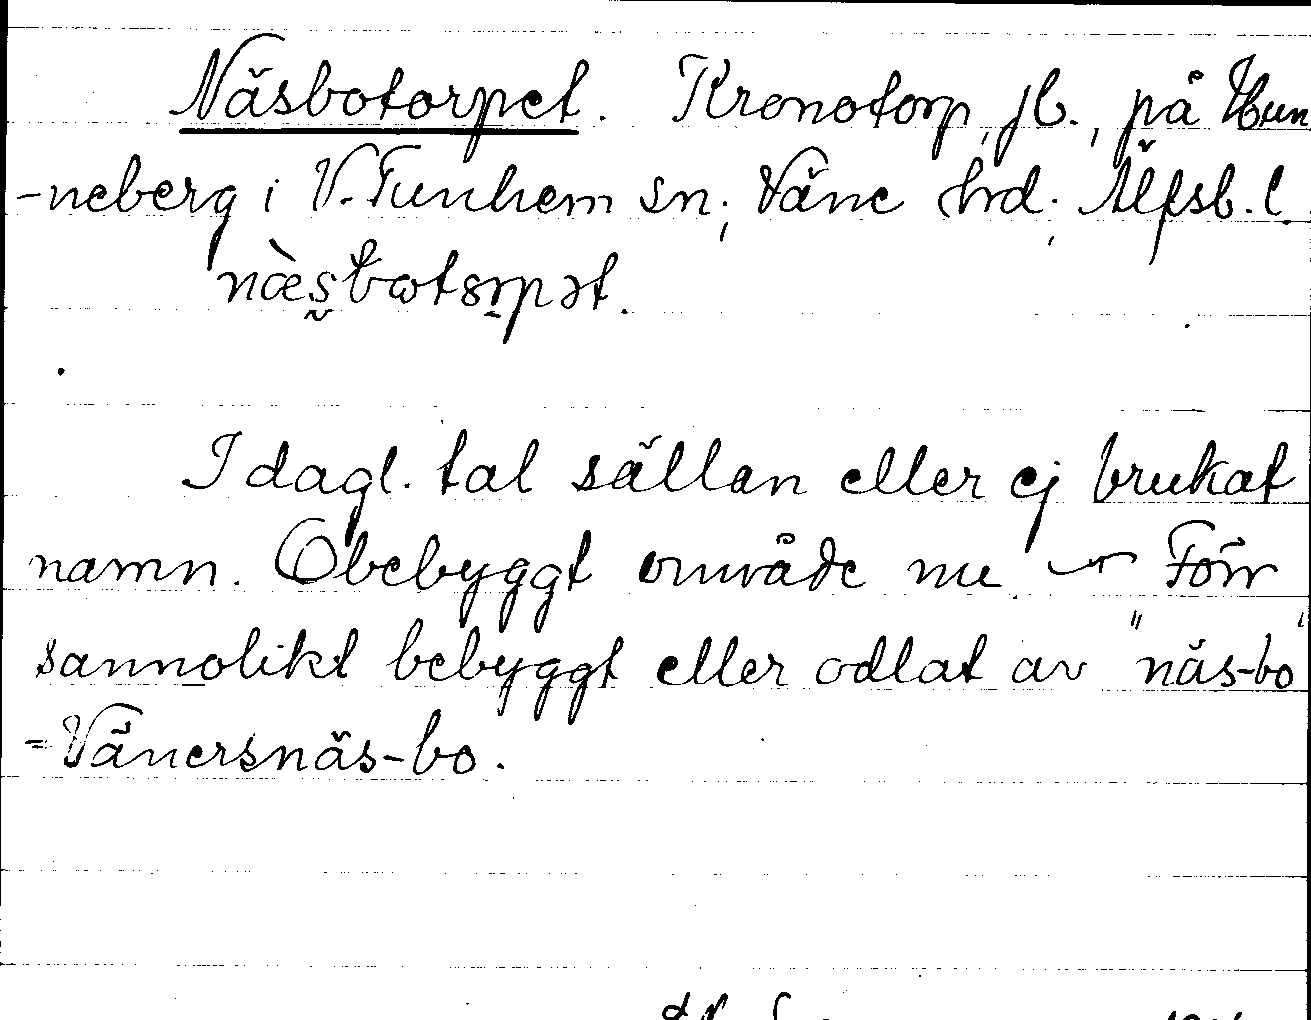 Näsbotorpet. Kronotorp, jb., på Hun
-neberg i V. Tunhem sn; Väne hrd; Älfsb. l.
næ̀s̬botsrpət.
I dagl. tal sällan eller ej brukat
namn. Obebyggt område nu. — Förr
sannolikt bebyggt eller odlat av "näs-bo"
= Vänersnäs-bo.